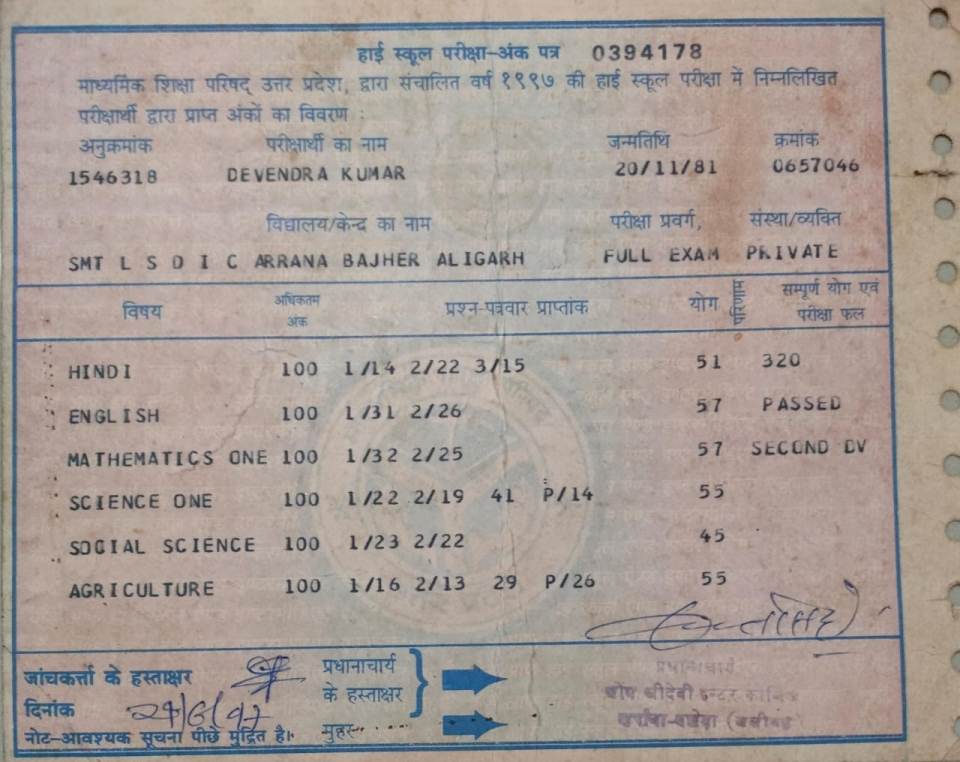 हाई स्कूल परीक्षा-अंक पत्र 0394178
माध्यमिक शिक्षा परिषद् उत्तर प्रदेश, द्वारा संचालित वर्ष १९९७ की हाई स्कूल परीक्षा में निम्नलिखित
परीक्षार्थी द्वारा प्राप्त अंकों का विवरण :
अनुक्रमांक परीक्षार्थी का नाम जन्मतिथि क्रमांक
1546318 DEVENDRA KUMAR 20/11/81 0657046
विद्यालय/केन्द का नाम परीक्षा प्रवर्ग, संस्था/व्यक्ति
SMT L S D I C ARRANA BAJHER ALIGARH FULL EXAM PRIVATE
विषय अधिकतम अंक प्रश्न-पत्रवार प्राप्तांक योग परिणाम सम्पूर्ण योग एवं परीक्षा फल
HINDI 100 1/14 2/22 3/15 51 320
ENGLISH 100 1/31 2/26 57 PASSED
MATHEMATICS ONE 100 1/32 2/25 57 SECOND DV
SCIENCE ONE 100 1/22 2/19 41 P/14 55
SOCIAL SCIENCE 100 1/23 2/22 45
AGRICULTURE 100 1/16 2/13 29 P/26 55
जांचकर्त्ता के हस्ताक्षर प्रधानाचार्य के हस्ताक्षर प्रधानाचार्य
दिनांक 24/6/97
नोट-आवश्यक सूचना पीछे मुद्रित है। मुहर